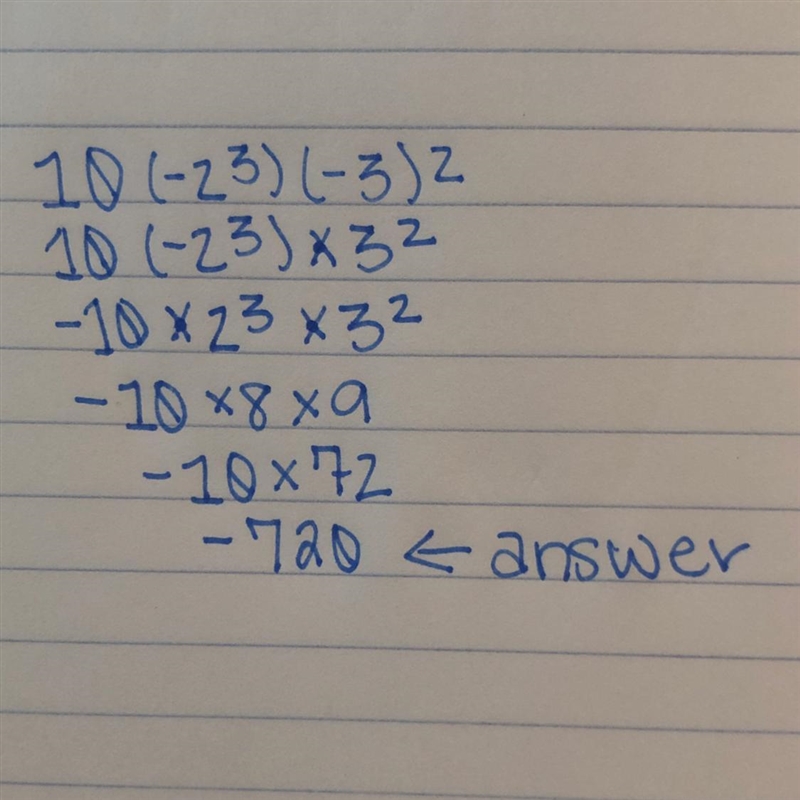 10(-2³)(-3)²
10(-2³)×3²
-10×2³×3²
-10×8×9
-10×72
-720 ← answer